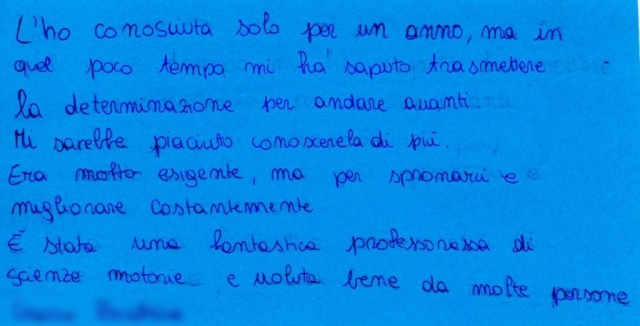 L'ho conosciuta solo per un anno, ma in
quel poco tempo mi ha saputo trasmettere
la determinazione per andare avanti
Mi sarebbe piaciuto conoscerela di più.
Era molto esigente, ma per spronarci e
miglionare costantemente
È stata una fantastica professoressa di
scienze motorie e voluta bene da molte persone